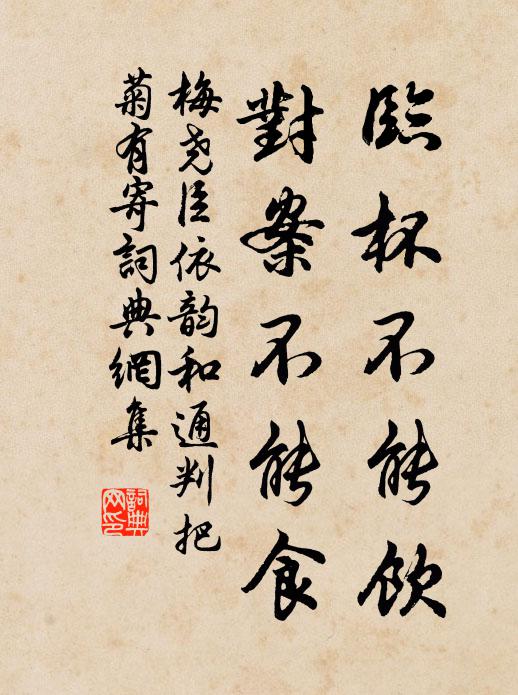 臨杯不能飲
對案不能食
梅堯臣依韵和通判把
菊有寄詞典網集
詞典网印